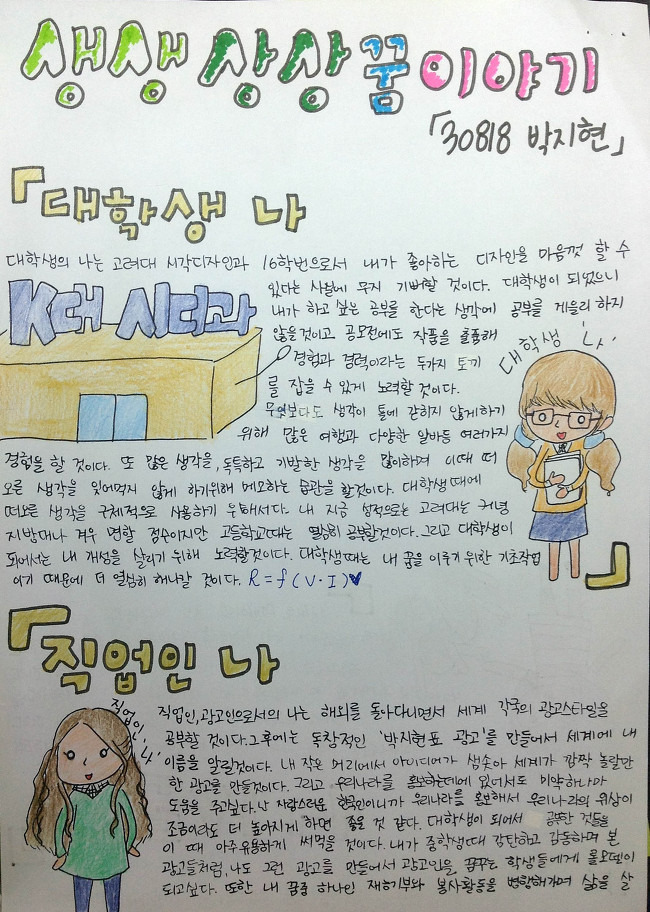 생생 상상 꿈 이야기
「30818 박지현」
「대학생 나
대학생의 나는 고려대 시각디자인과 16학번으로서 내가 좋아하는 디자인을 마음껏 할 수
있다는 사실에 무지 기뻐할 것이다. 대학생이 되었으니
K대 시디과
내가 하고 싶은 공부를 한다는 생각에 공부를 게을리 하지
않을것이고 공모전에도 작품을 출품해
경험과 경력이라는 두가지 토끼
를 잡을 수 있게 노력할 것이다.
대학생 나
무엇보다도 생각이 틀에 갇히지 않게하기
위해 많은 여행과 다양한 알바등 여러가지
경험을 할 것이다. 또 많은 생각을, 독특하고 기발한 생각을 많이하며 이때 떠
오른 생각을 잊어먹지 않게 하기위해 메모하는 습관을 할것이다. 대학생때에
떠오른 생각을 구체적으로 사용하기 위해서다. 내 지금 성적으로는 고려대는 커녕
지방대나 겨우 면할 점수이지만 고등학교때는 열심히 공부할것이다. 그리고 대학생이
되어서는 내 개성을 살리기 위해 노력할것이다. 대학생때는 내 꿈을 이루기 위한 기초작업
이기 때문에 더 열심히 해나갈 것이다. R=f(V·I)♥
」
「직업인 나
직업인 나
직업인, 광고인으로서의 나는 해외를 돌아다니면서 세계 각국의 광고스타일을
공부할 것이다. 그후에는 독창적인 '박지현표 광고'를 만들어서 세계에 내
이름을 알릴것이다. 내 작은 머리에서 아이디어가 샘솟아 세계가 깜짝 놀랄만
한 광고를 만들것이다. 그리고 우리나라를 홍보하는데에 있어서도 미약하나마
도움을 주고싶다. 난 자랑스러운 한국인이니까 우리나라를 홍보해서 우리나라의 위상이
조금이라도 더 높아지게 하면 좋을 것 같다. 대학생이 되어서 공부한 것들을
이 때 아주 유용하게 써먹을 것이다. 내가 중학생때 감탄하고 감동하며 본
광고들처럼, 나도 그런 광고를 만들어서 광고인을 꿈꾸는 학생들에게 롤모델이
되고싶다. 또한 내 꿈중 하나인 재능기부와 봉사활동을 병행해가며 삶을 살